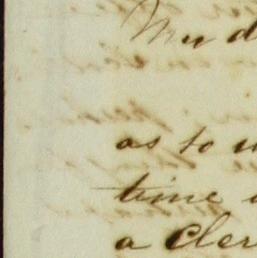 My d
as to u
time
a Cler